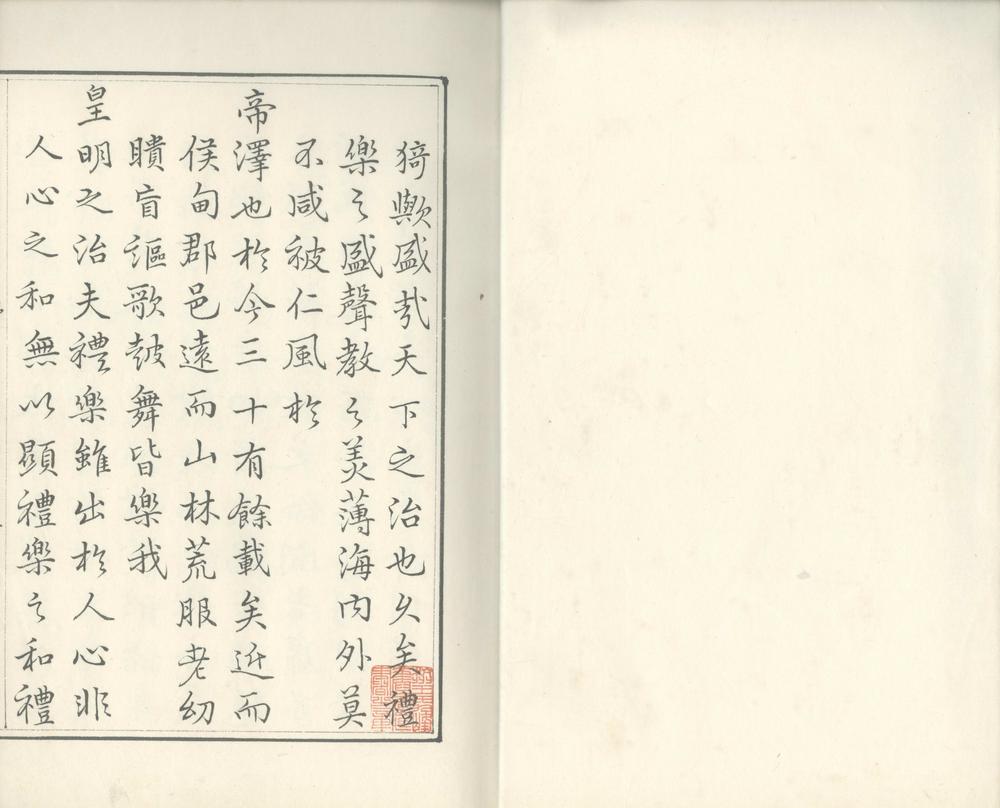 猗歟盛哉天下之治也久矣禮
樂之盛聲教之美薄海內外莫
不咸被仁風於
帝澤也於今三十有餘載矣近而
侯甸郡邑遠而山林荒服老幼
瞶盲謳歌皷舞皆樂我
皇明之治夫禮樂雖出於人心非
人心之和無以顯禮樂之和禮